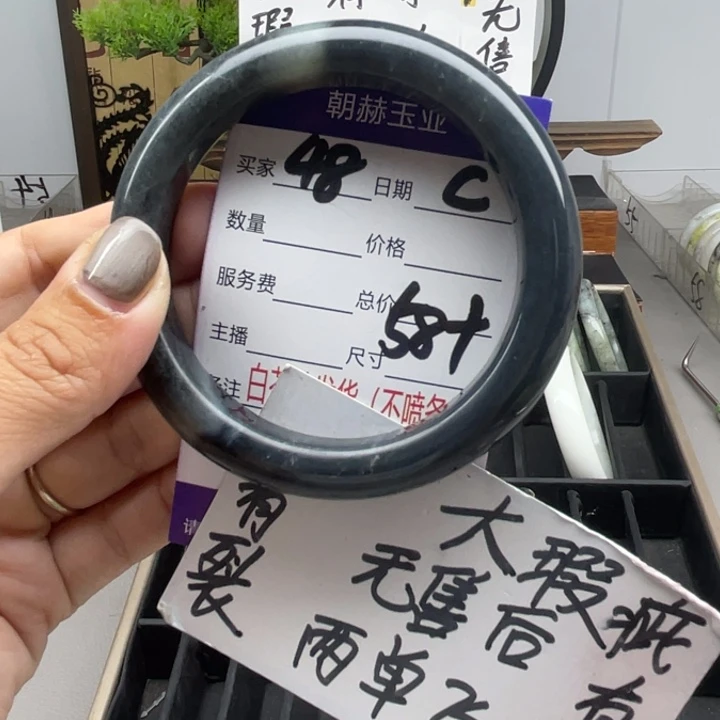 无
瑕
售
朝赫玉业
买家 48 日期 C
数量 价格
服务费 总价
58+
主播 尺寸
备注 白 发货（不喷备
请
有裂
大瑕疵有
无售后
两单